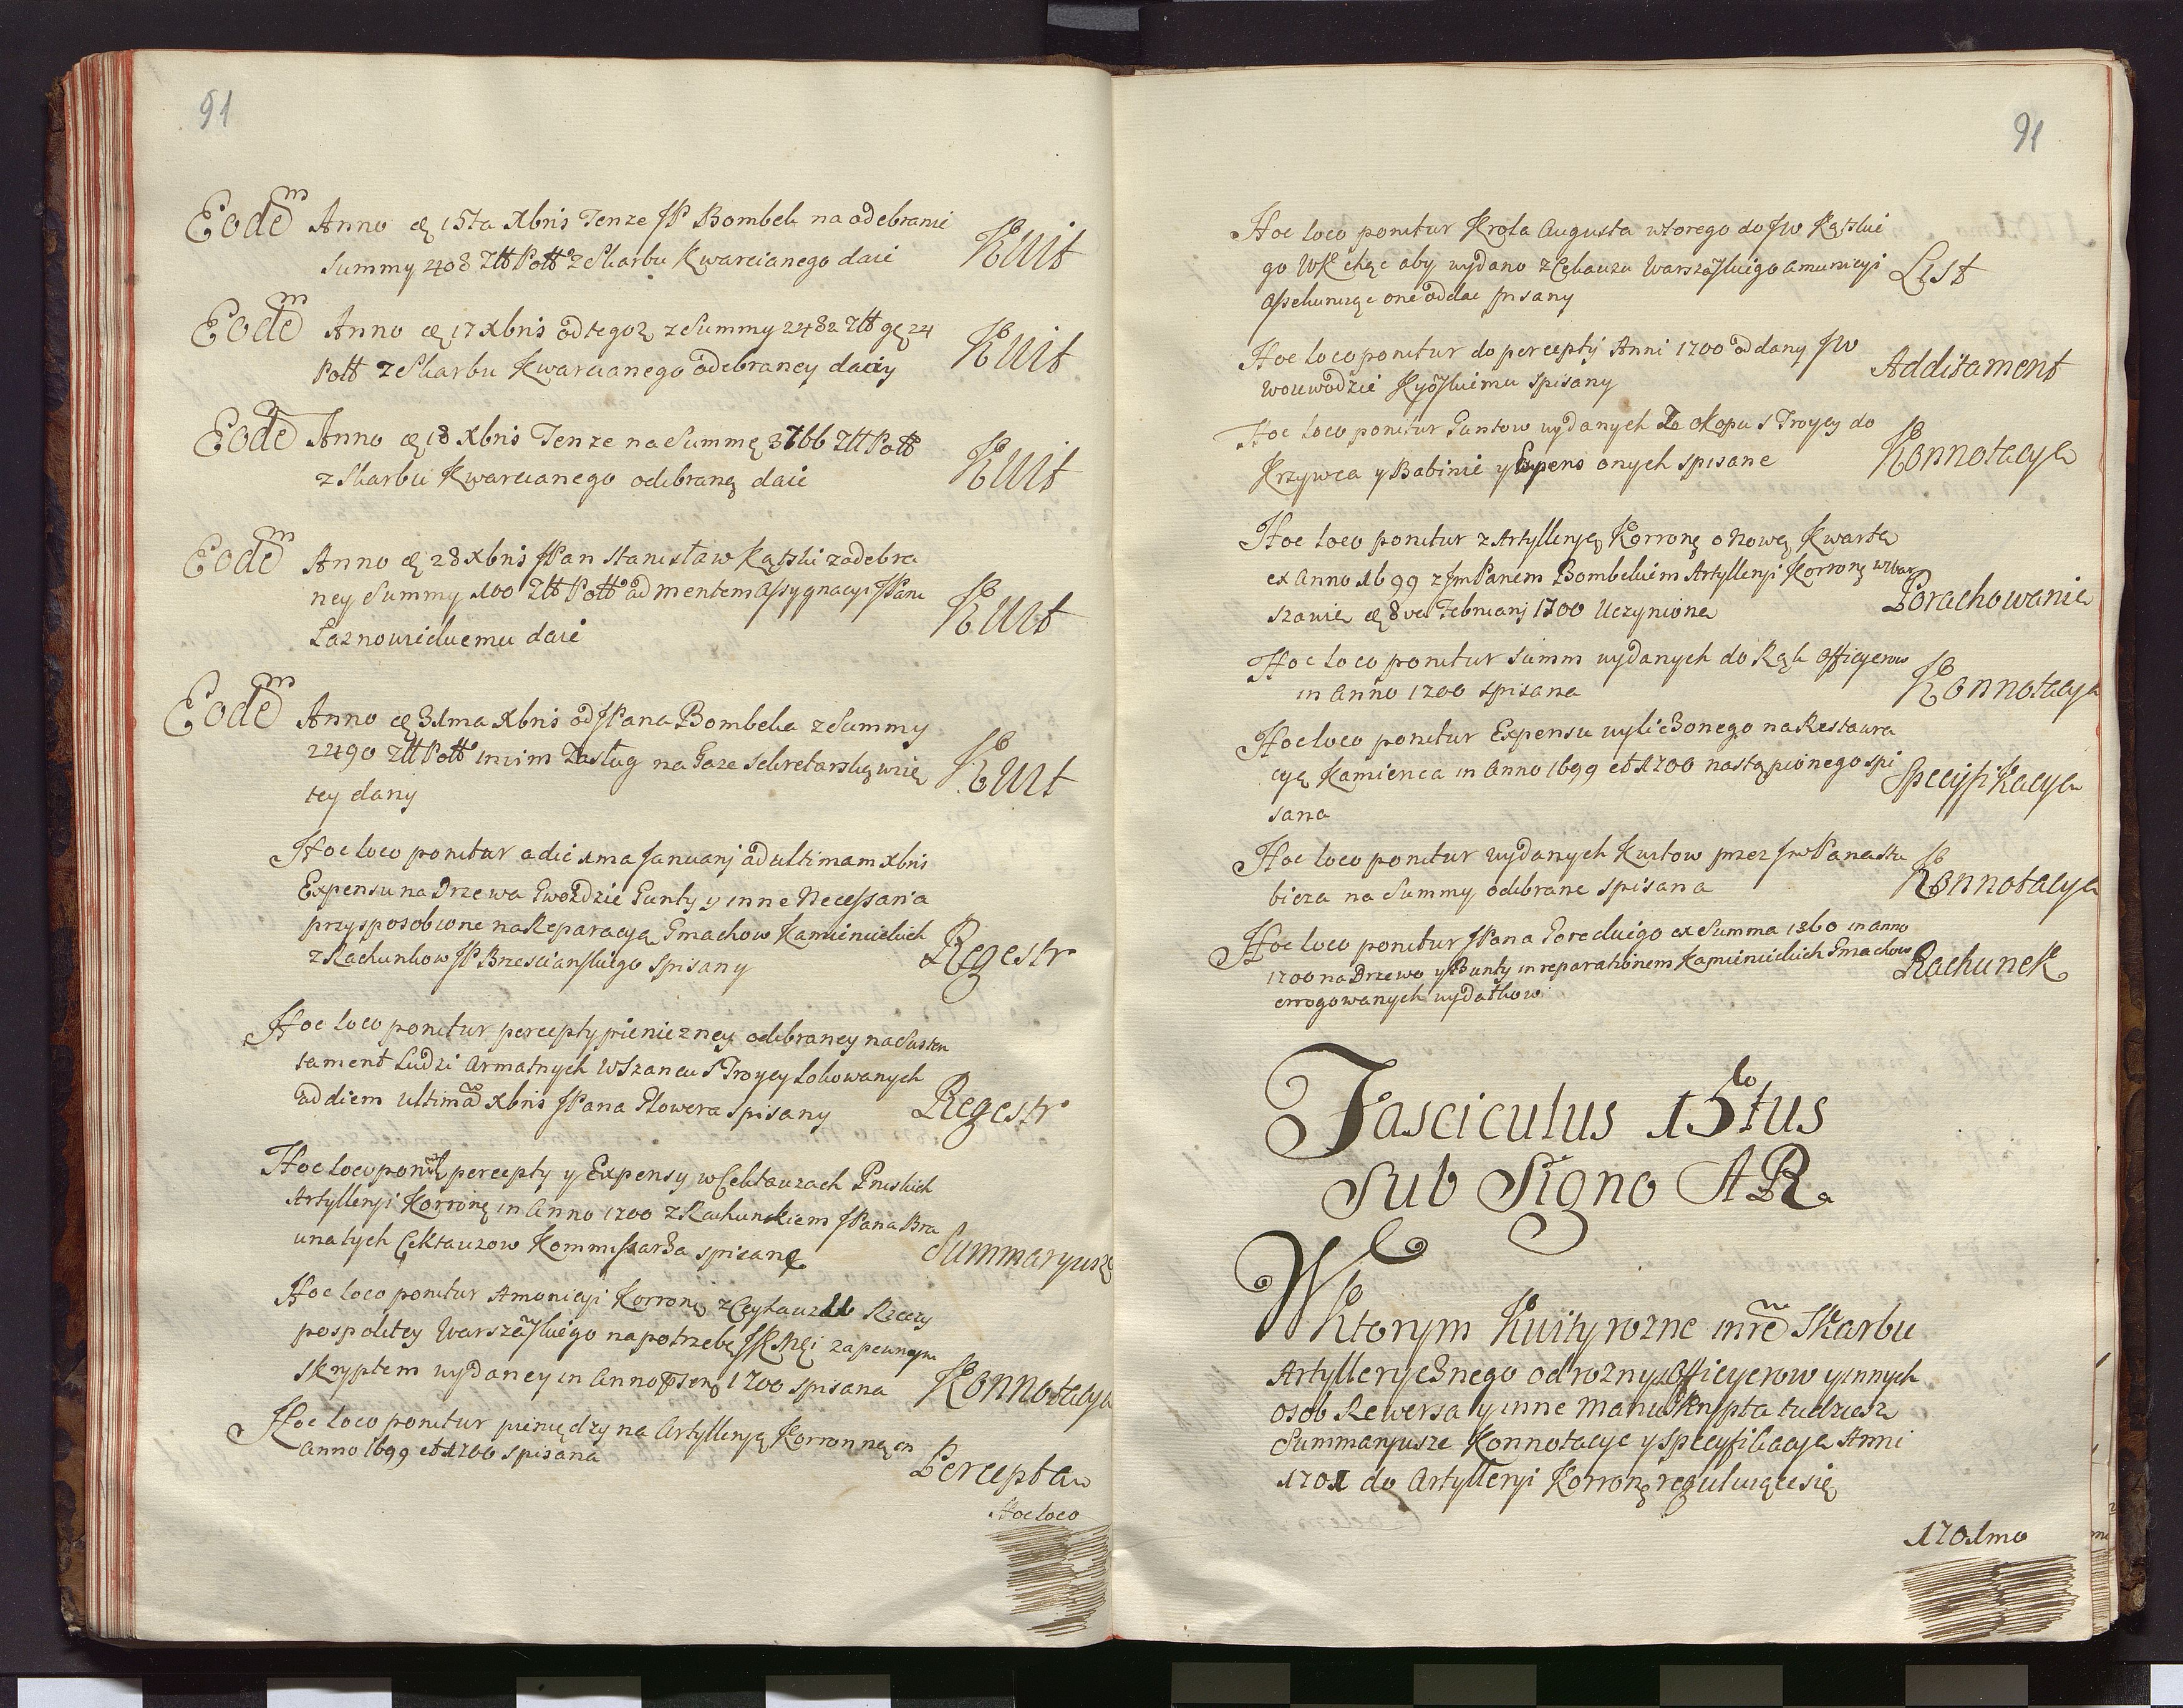 91
Eodem Anno d 15ta Xbris Tenze JP Bombek na odebranie Kwit
Summy 408 Ztt Poltt z Skarbu Kwarcianego daie
Eodem Anno d 17 Xbris od tegoz z Summy 2482 Ztt gr 24 Kwit
Poltt z Skarbu Kwarcianego odebraney dany
Eodem Anno d 18 Xbris Tenze na Summę 3766 Ztt Poltt Kwit
z Skarbu Kwarcianego odebraną daie
Eodem Anno d 28 Xbris JPan Stanisław Kątski z odebra
ney Summy 100 Ztt Poltt ad mentem Assygnacyi JPanu Kwit
Łaznowieckuemu daie
Eodem Anno d 31ma Xbris od JPana Bombeka z Summy
2490 Ztt Poltt in vim Zasług na Gaze Sekretarską wzię Kwit
tey dany
Hoc loco ponitur a die 1ma Januarij ad ultimam Xbris
Expensu na Drzewa Gwoździe Gunty y inne Necessaria
przysposobione na Reparacyą Gmachow Kamienieckich
z Rachunkow JP Brzescianskiego spisany Regestr
Hoc loco ponitur percepty pienięzney odebraney na Susten
tament Ludzi Armatnych w Szancu S Troycy Lokowanych
ad diem ultimam Xbris JPana Glowera spisany Regestr
Hoc loco ponitur percepty y Expensy w Cekhauzach Pruskich
Artylleryi Korronę in Anno 1700 z Rachunkiem JPana Bra
una tych Cekhauzow Kommissarza spisane Summaryusz
Hoc loco ponitur Amunicyi Korronę z Ceyhauzu Rzeczy
pospolitey Warszaskiego na potrzebę JKMci za pewnym
skryptem wydaney in Anno psenti 1700 spisana Konnotacya
Hoc loco ponitur pieniędzy na Artylleryą Korronną in
Anno 1699 et 1700 spisana Percepta
Hoc loco
91
Hoc loco ponitur Krola Augusta wtorego do JW Kątskie
go WK chcąc aby wydano z Cekauzu Warszaskiego Amunicyi List
assekuruiąc one oddac pisany
Hoc loco ponitur do percepty Anni 1700 oddany JW Additament
Woiewodzie Kyoskiemu spisany
Hoc loco ponitur Guntow wydanych do Okopu S Troycy do
Krzywca y Babiniec y Expens onych spisane Konnotacya
Hoc loco ponitur z Artylleryą Korronę o Nową Kwartę
ex Anno 1699 z JmPanem Bombekiem Artylleryi Korronę w War
szawie d 8va Februarij 1700 Uczynione Porachowanie
Hoc loco ponitur Summ wydanych do Rąk Officyerow
in Anno 1700 spisana Konnotacya
Hoc loco ponitur Expensu wyliczonego na Restaura
cyą Kamienca in Anno 1699 et 1700 nastąpionego spi Specyfikacya
sana
Hoc loco ponitur wydanych Kwitow przez JW Pana Stu
bicza na Summy odebrane spisana Konnotacya
Hoc loco ponitur JPana Goreckiego ex Summa 1360 in anno
1700 na Drzewo y Gunty in reparationem Kamienieckich Gmachow Rachunek
errogowanych wydatkow
Fasciculus 15tus
Sub Signo AR.
W Ktorym Kwity rozne in re Skarbu
Artylleryicznego od roznych Officyerow y innych
osob Rewersa y inne Manuskrypta tudziesz
Summaryusze Konnotacye y Specyfikacye Anni
1701 do Artylleryi Korronę reguluiące się
1701mo